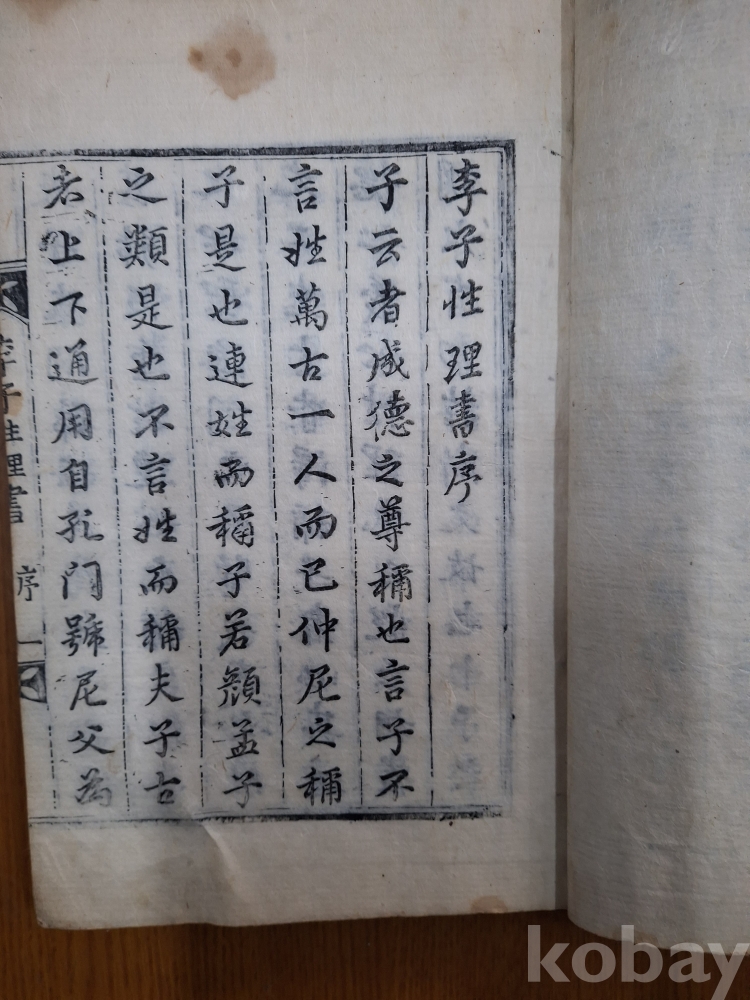 李子性理書序
子云者成德之尊稱也言子不
言姓萬古一人而已仲尼之稱
子是也連姓而稱子若顔孟子
之類是也不言姓而稱夫子古
者上下通用自孔門號尼父為
李子性理書 序 一
kobay